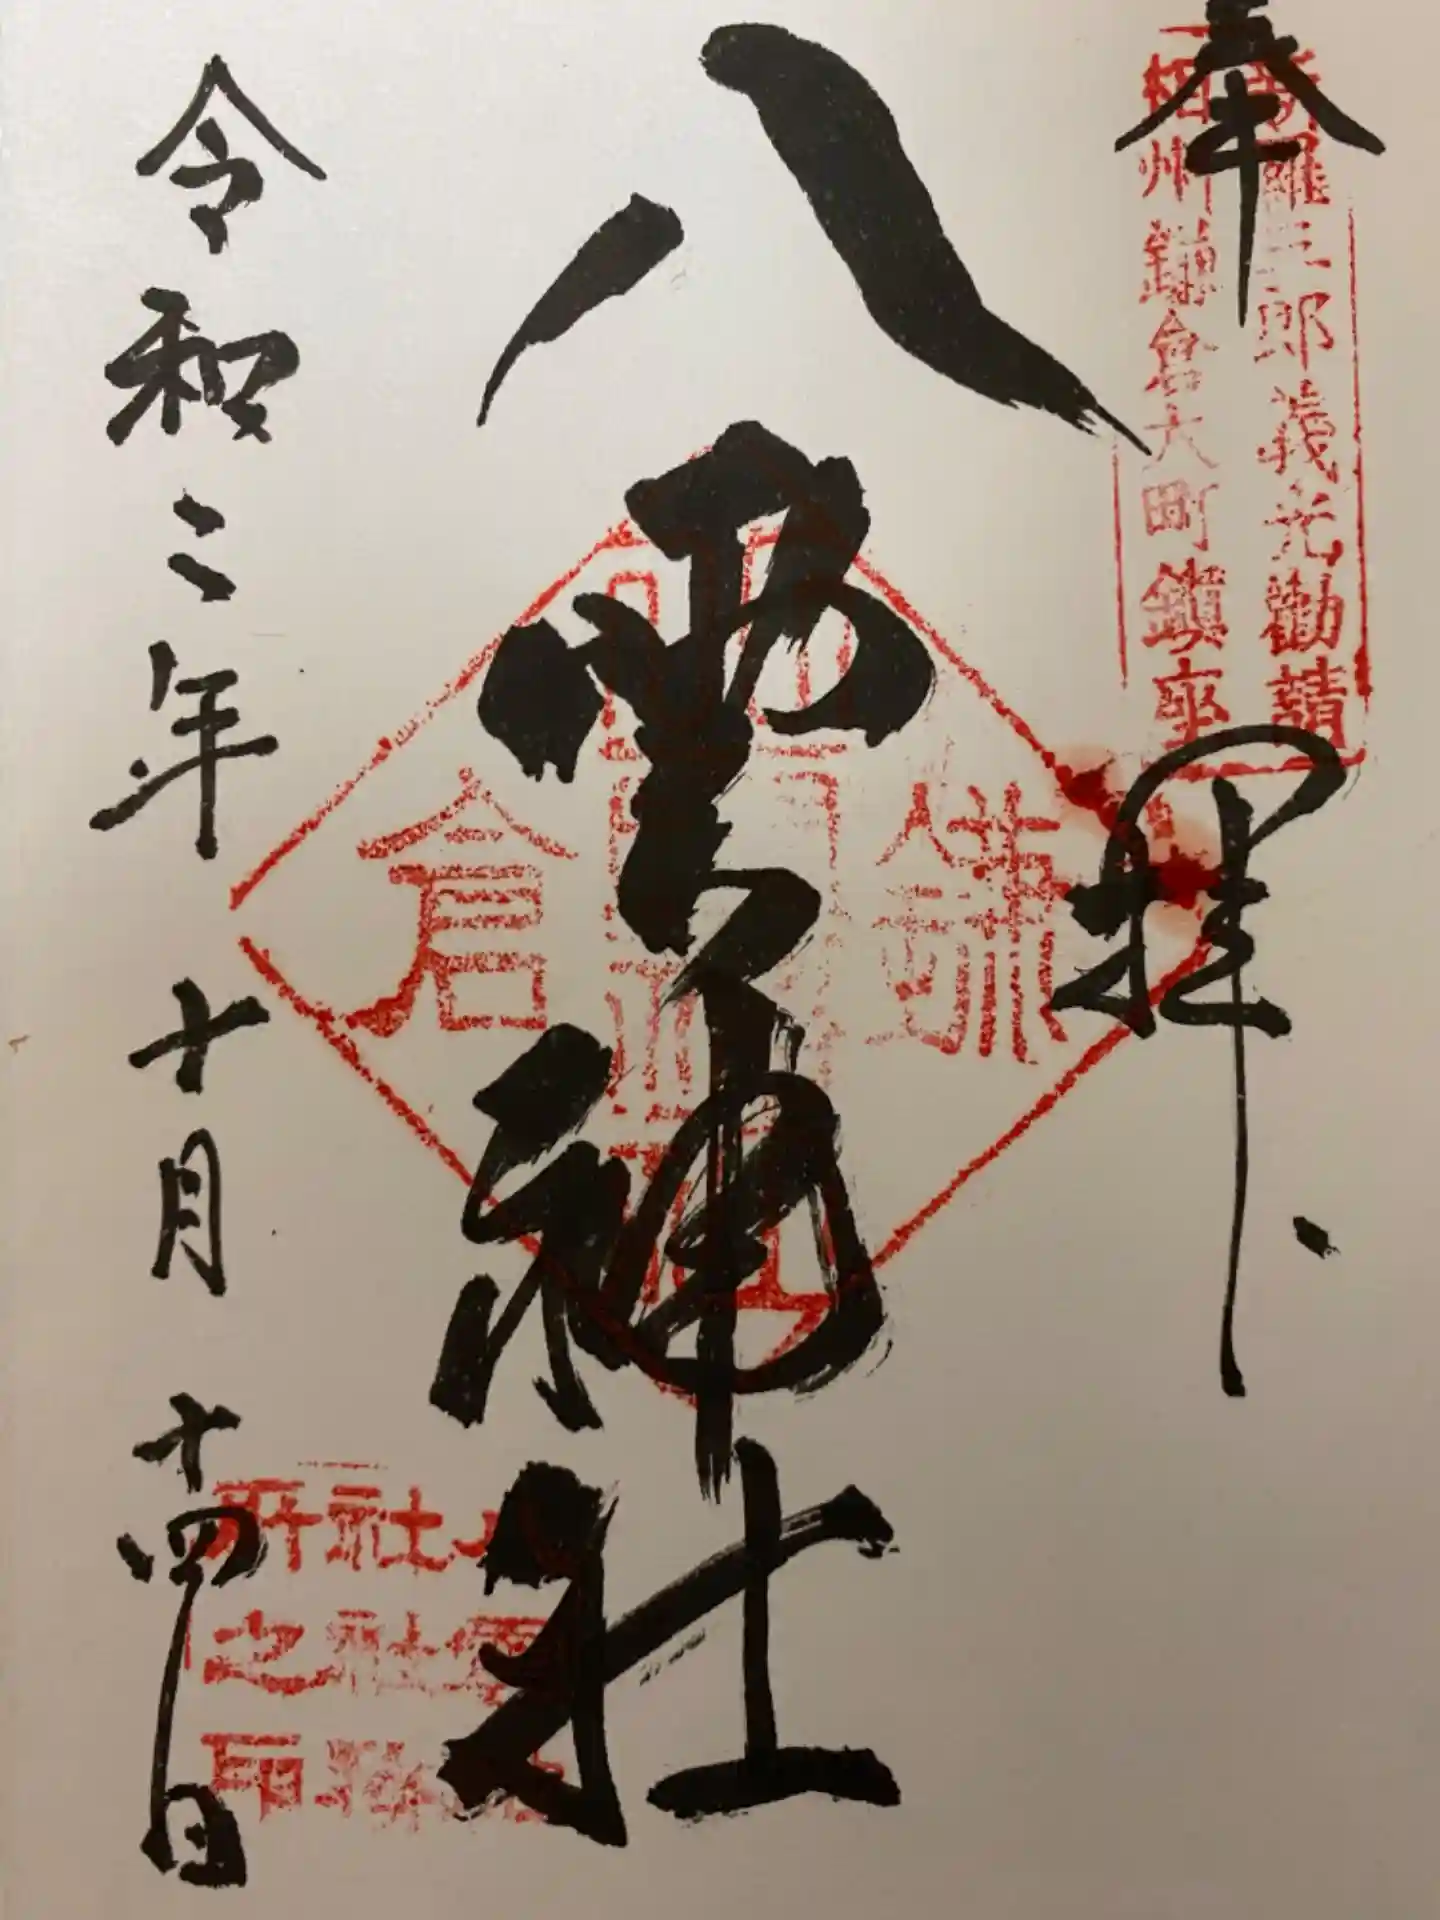 奉拝
新羅三郎義光勧請
相州鎌倉大町鎮座
八雲神社
鎌倉
令和二年十月十四日
八雲神
社社務
所之印